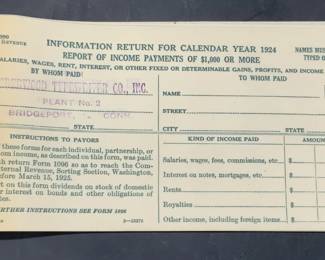 REVENUE
INFORMATION RETURN FOR CALENDAR YEAR 1924
REPORT OF INCOME PAYMENTS OF $1,000 OR MORE
SALARIES, WAGES, RENT, INTEREST, OR OTHER FIXED OR DETERMINABLE GAINS, PROFITS, AND INCOME
NAMES MUS
TYPED O
BY WHOM PAID
TO WHOM PAID
TYPEWRITER CO., INC.
PLANT No. 2
BRIDGEPORT, CONN
STATE
NAME
STREET
CITY
STATE
INSTRUCTIONS TO PAYORS
these forms for each individual, partnership, or
om income, as described on this form, was paid.
h return Form 1096 so as to reach the Com-
ternal Revenue, Sorting Section, Washington,
efore March 15, 1925.
rt on this form dividends on stock of domestic
r interest on bonds or other obligations of
ties.
RTHER INSTRUCTIONS SEE FORM 1096
KIND OF INCOME PAID
AMO
Salaries, wages, fees, commissions, etc.
$
Interest on notes, mortgages, etc.
Rents
Royalties
Other income, including foreign items
$